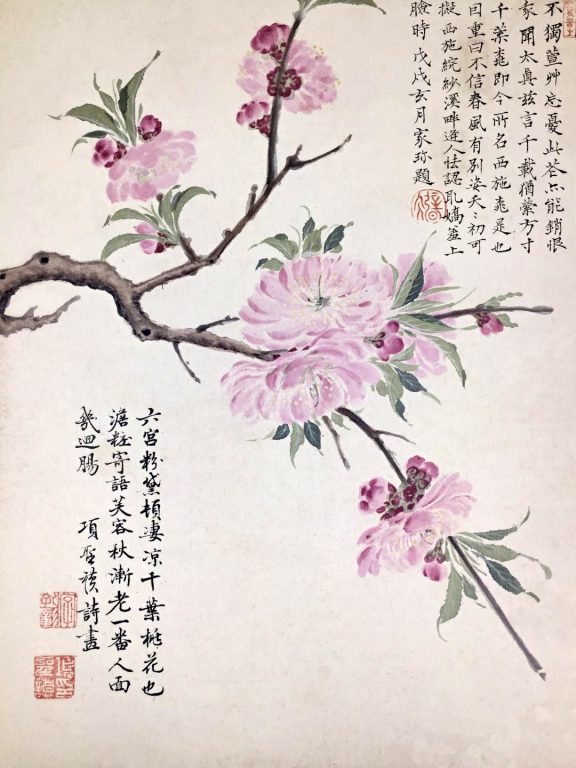 不獨萱艸忘憂此花亦能銷恨
聞太真茲言千載猶縈方寸
千葉桃即今所名西施桃是也
因重曰不信春風有別姿夭〻初可
擬西施浣紗溪畔遊人怯認嬌羞上
臉時 戊戌玄月家珎題
六宮粉黛頓凄涼千葉桃花也
澹粧寄語芙容秋漸老一番人面
幾迴腸
項聖謨詩畫